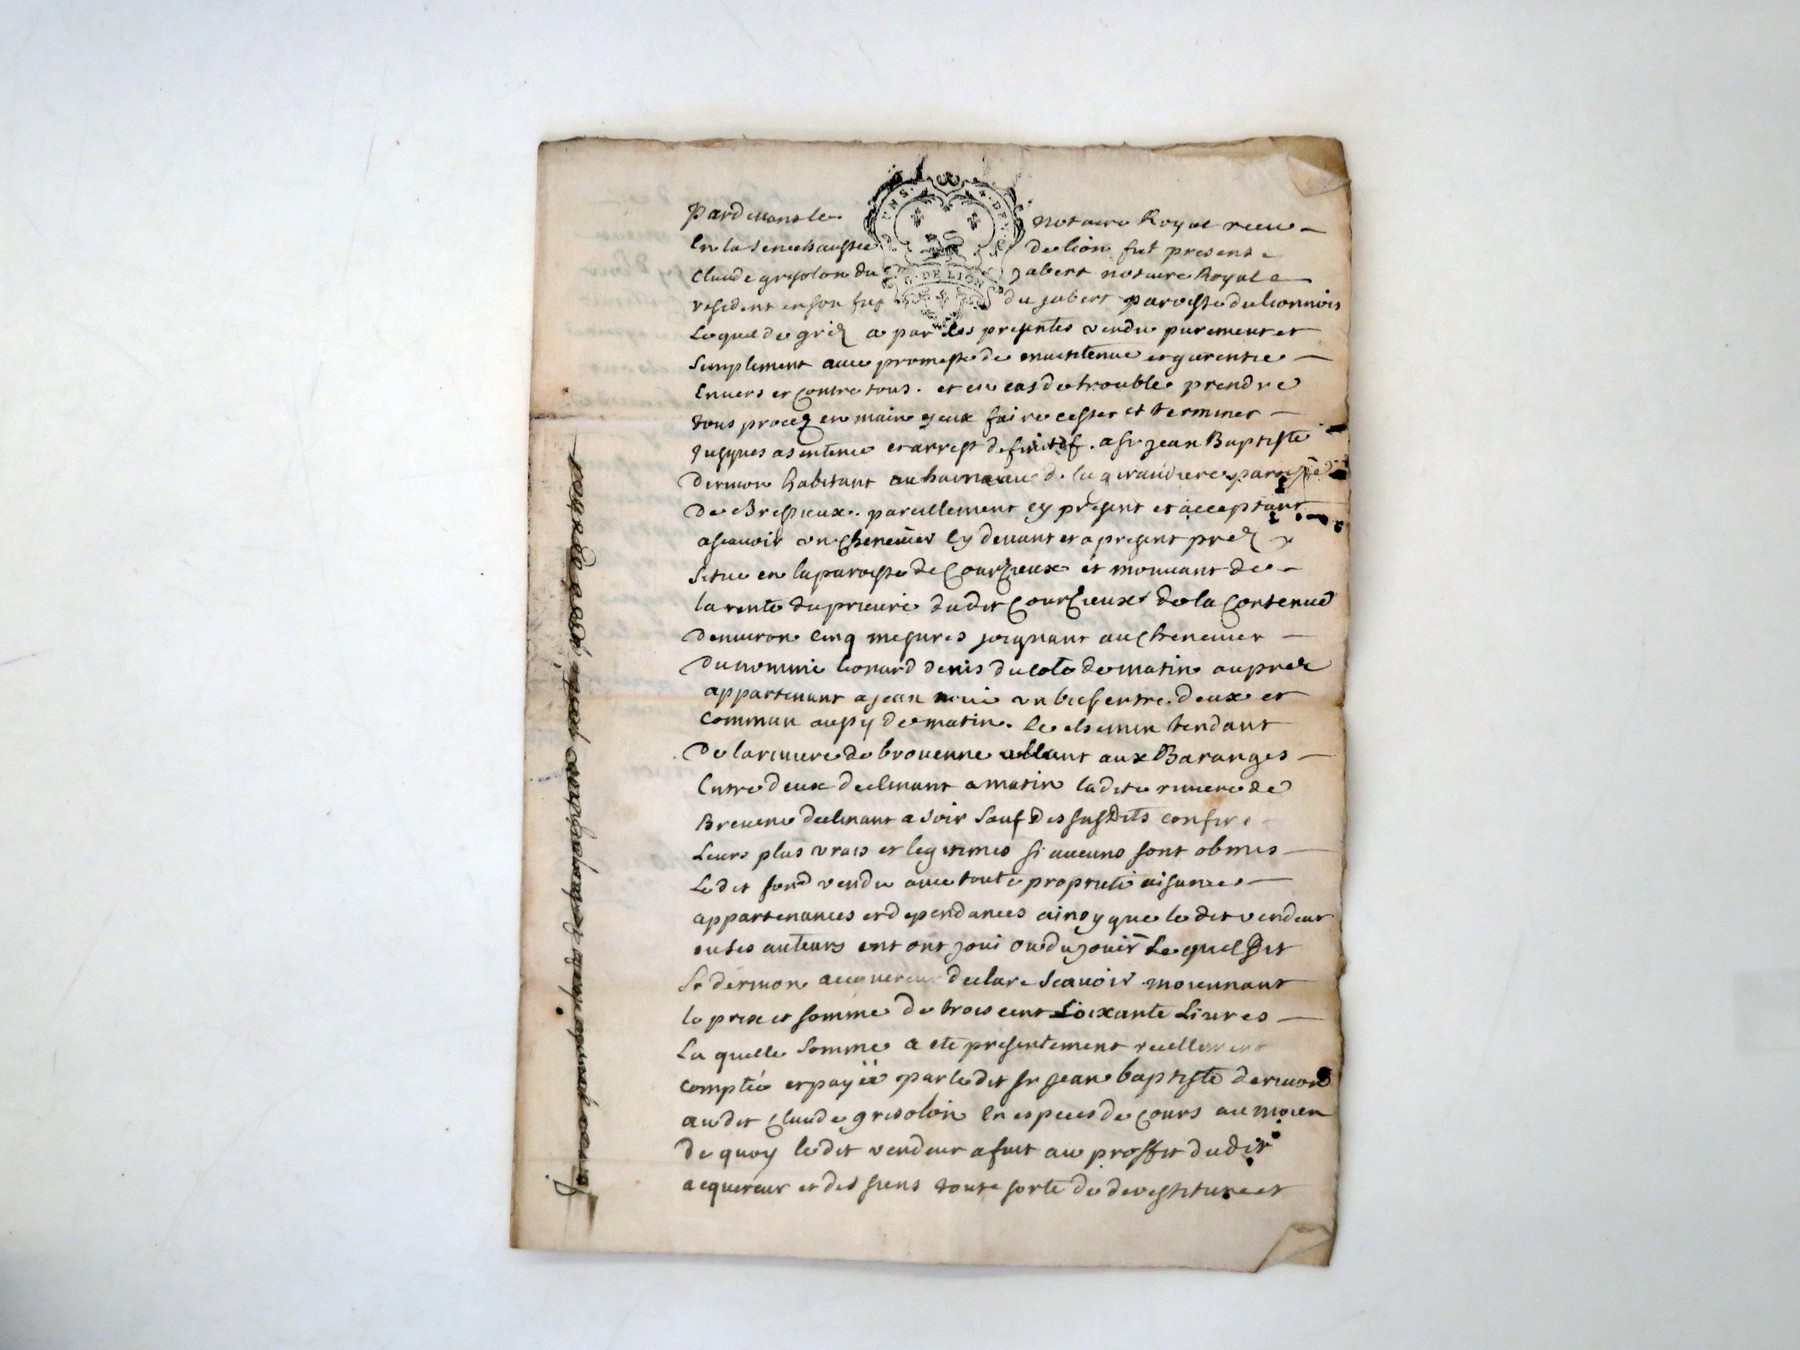 Pardevant le notaire Royal recu
En la senechaussée de lion fut present
Claude grisolon du jabert notaire Royal
resident en son fief du jabert paroisse du lionnois
Lequel de gré a par les presentes vendu purement et
simplement avec promesse de maintenue et garentie
Envers et contre tous. et en cas de trouble prendre
tous procez en main yceux faire cesser et terminer
Jusques a sentence et arrest definitif. a sr jean Baptiste
Dermon habitant au hameau de la giraudiere paroisse
De Bressieux. pareillement cy present et acceptant
ascavoir un chenevier cy devant et a present prez
situe en la paroisse de Courzieux et mouvant de
la rente du prieuré dudit Courzieux de la Contenue
denviron cinq mesures joignant au chenevier
du nommé leonard denis du coté de matin au prez
appartenant a jean un bief entre deux et
commun aussy de matin. Le chemin tendant
De la riviere de brevenne allant aux Baranges
Entre deux declinant a matin ladite riviere de
Brevene declinant a soir sauf des susdits confins
Leurs plus vrais et legitimes si aucuns sont obmis
Le dit fond vendu avec toute proprieté aisances
appartenances et dependances ainsy que le dit vendeur
ou ses auteurs ent ont joui ou du jouir Le quel dit
Sr dermon acquereur declare scavoir moiennant
le prix et somme de trois cent soixante Livres
La quelle somme a eté presentement reellement
comptée et payée par le dit sr jean baptiste dermon
audit Claude grisolon en especes de cours au moien
de quoy le dit vendeur a fait au proffit dudit
acquereur et des siens toute sorte de devestiture et
DE LION